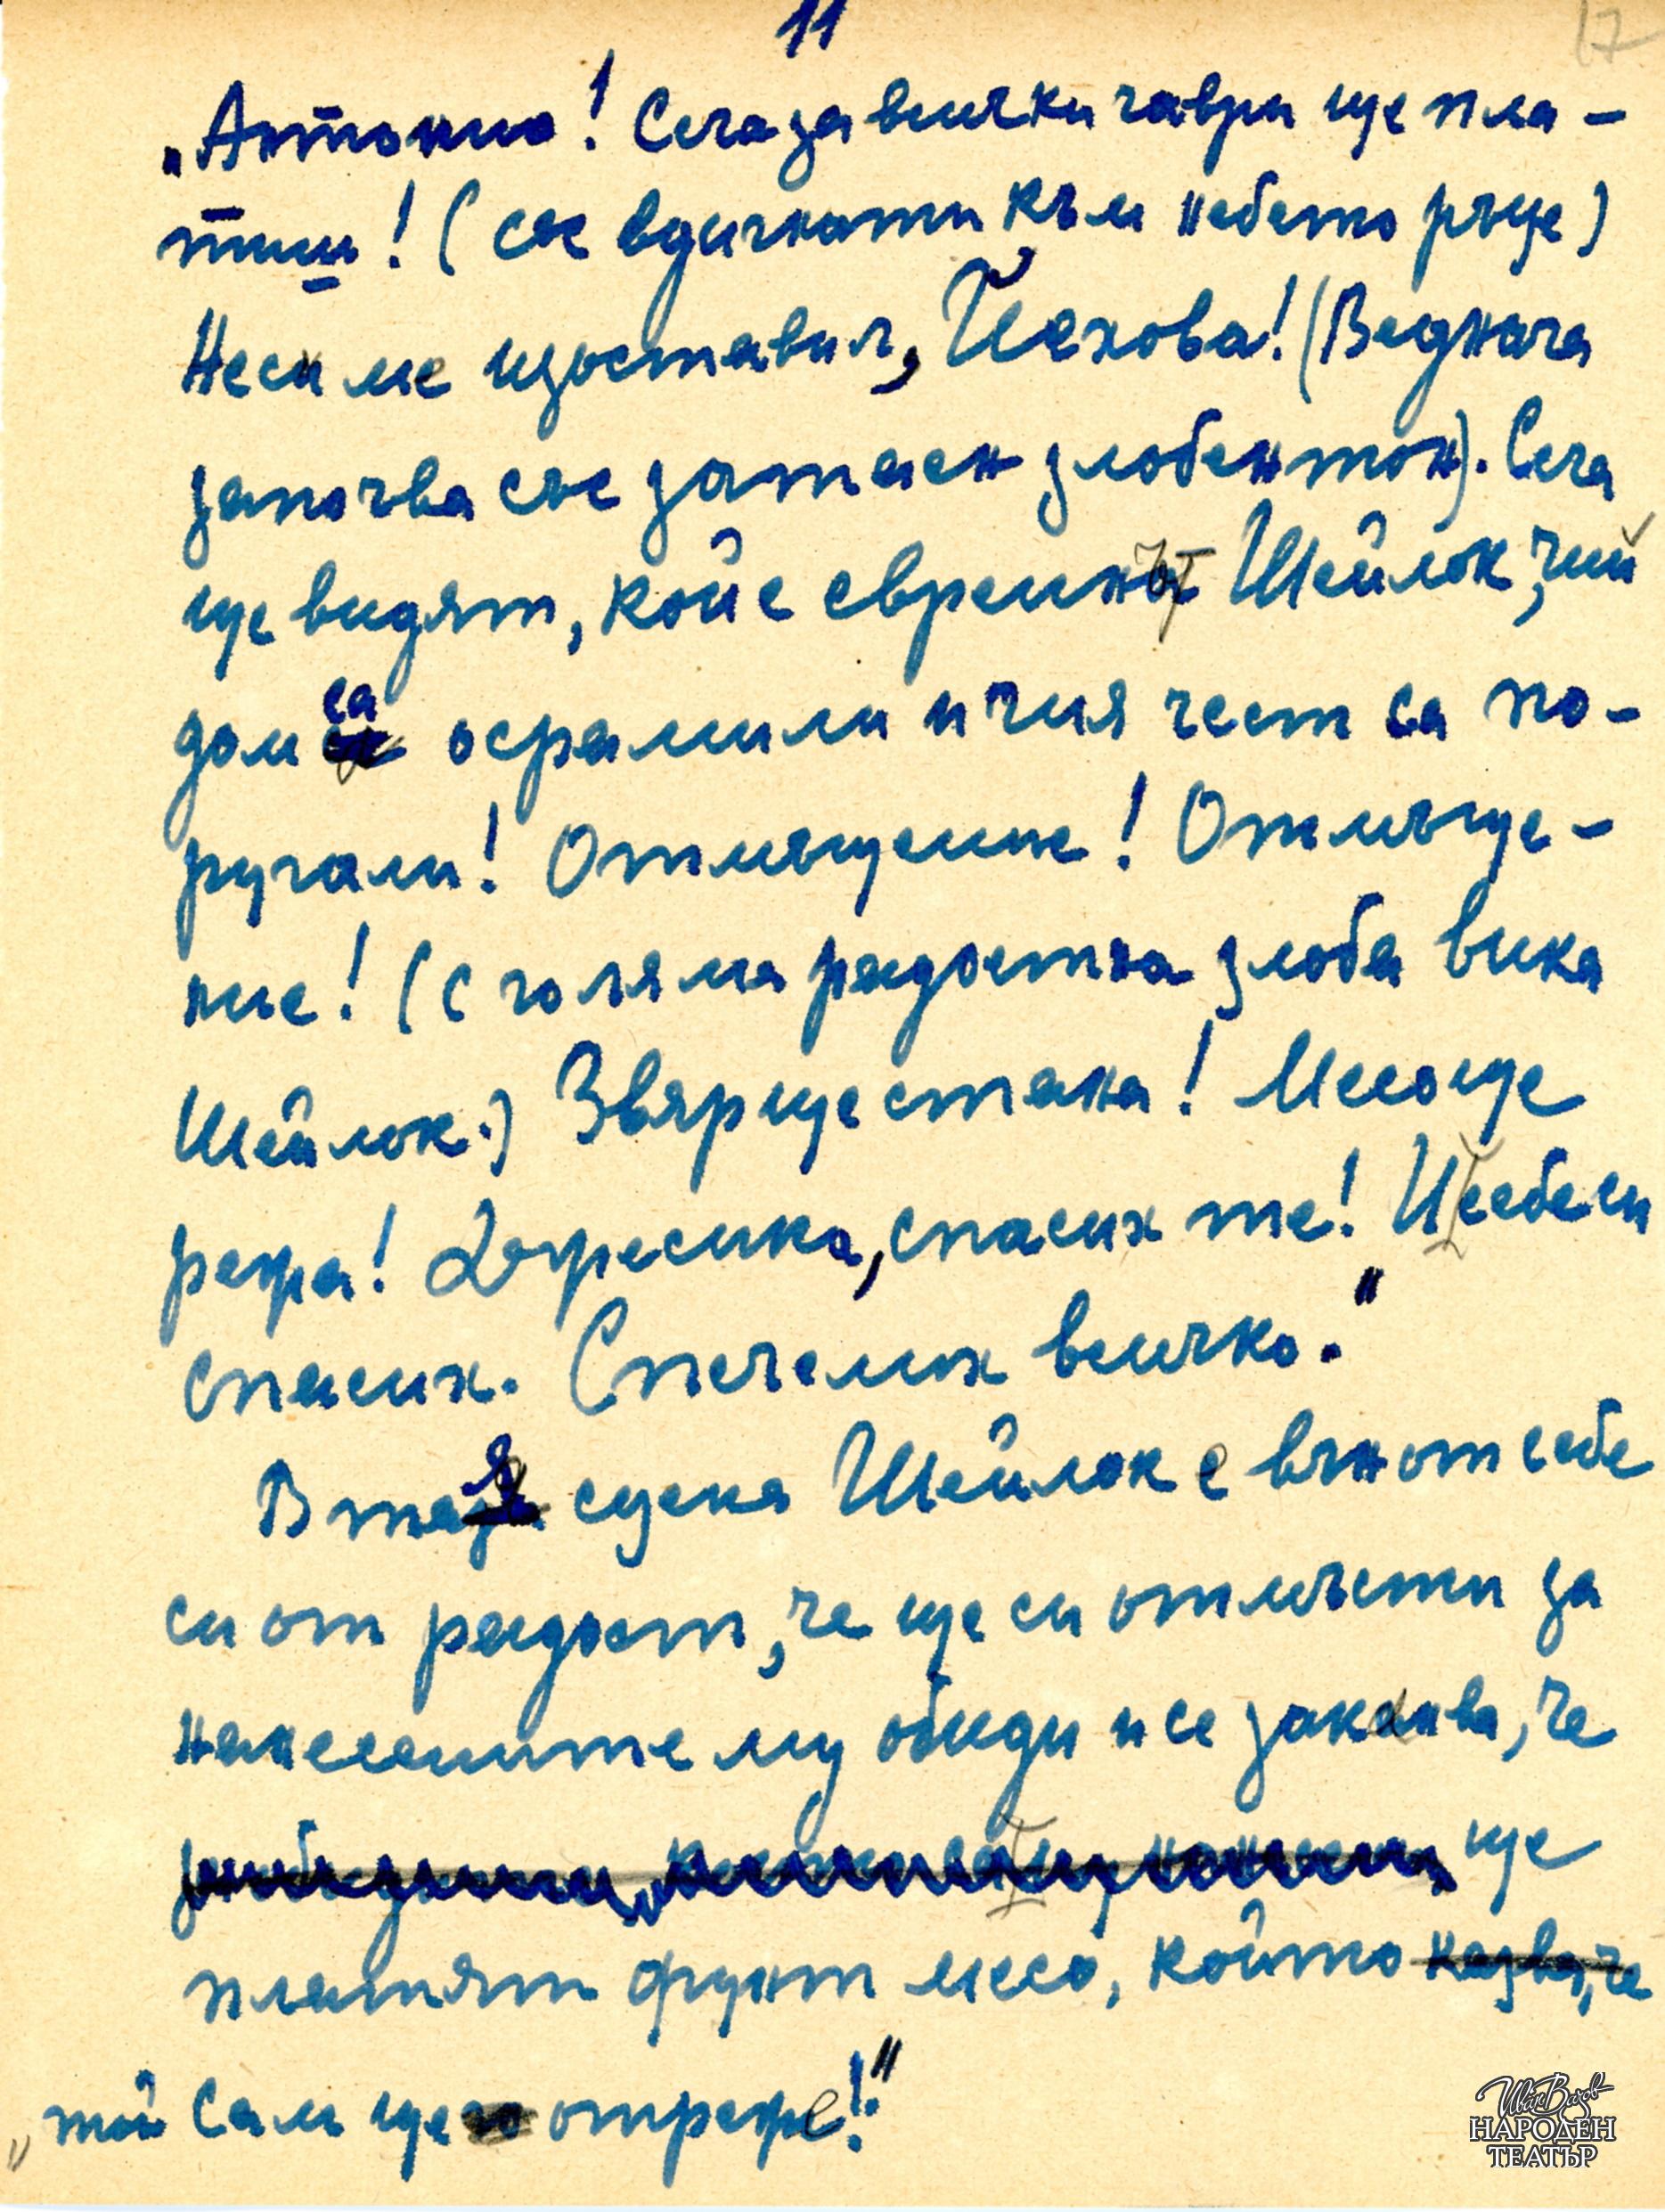 11
17
„Антонио! Сега за всички гаври ще пла-
тиш! (със вдигнати към небето ръце)
Не си ме изоставил, Йехова! (Веднага
започва със затаен злобен тон). Сега
ще видят, кой е евреинът Шейлок, чий
дом са осрамили и чия чест са по-
ругали! Отмъщение! Отмъще-
ние! (с голяма радостна злоба вика
Шейлок.) Звяр ще стана! Месо ще
режа! Джесика, спасих те! И себе си
спасих. Спечелих всичко."
В тая сцена Шейлок е вън от себе
си от радост, че ще си отмъсти за
нанесените му обиди и се заканва, че
ще
платят фунт месо, който казва, че
„той сам ще го отреже!"
Иван Вазов
НАРОДЕН
ТЕАТЪР